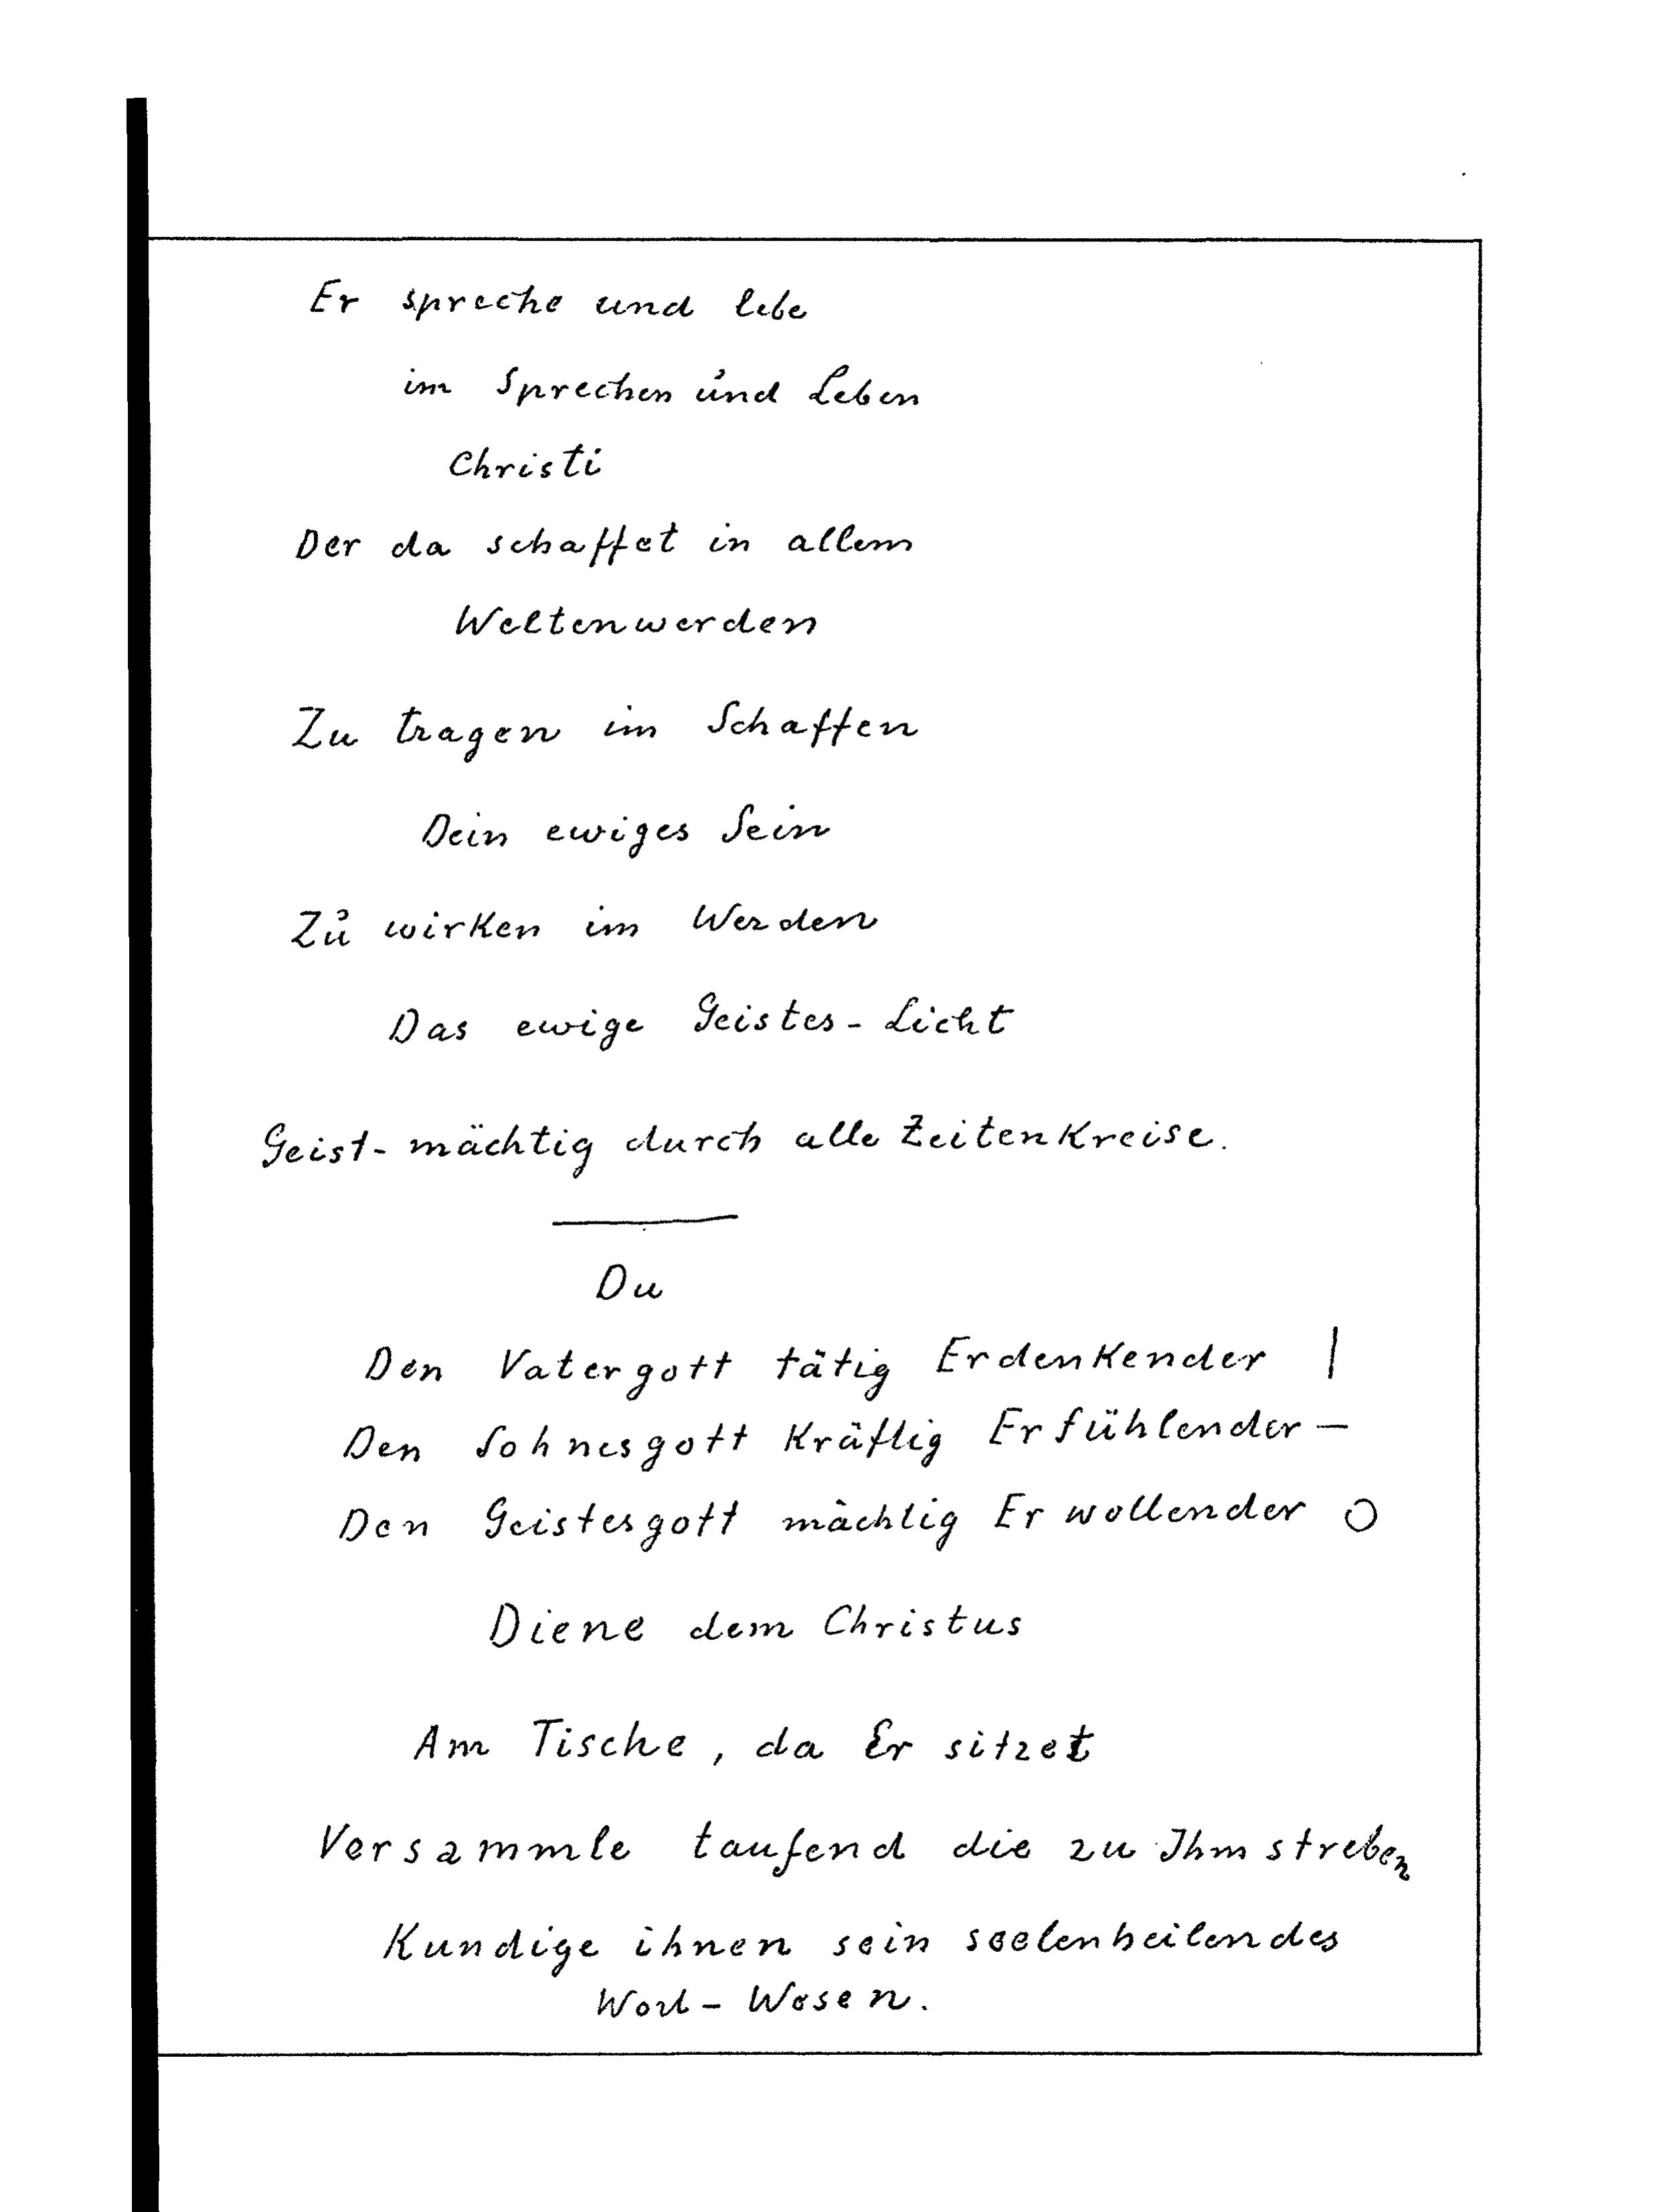 Er spreche und lebe
im Sprechen und Leben
Christi
Der da schaffet in allem
Weltenwerden
Zu tragen im Schaffen
Dein ewiges Sein
Zu wirken im Werden
Das ewige Geistes-Licht
Geist-mächtig durch alle Zeitenkreise.
Du
Den Vatergott tätig Erdenkender |
Den Sohnesgott Kräftig Erfühlender —
Den Geistesgott mächtig Erwollender O
Diene dem Christus
Am Tische, da Er sitzet
Versammle taufend die zu Ihm streben
Kundige ihnen sein seelenheilendes
Wort-Wesen.